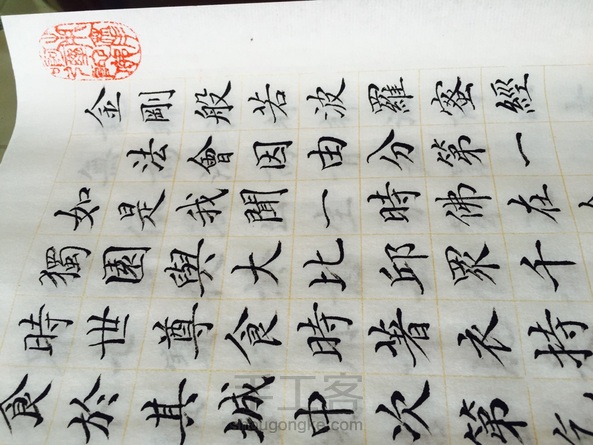 金剛般若波羅蜜經
法會因由分第一
如是我聞一時佛在
獨園與大比邱眾千
時世尊食時著衣持
食於其城中次第
手工客
shougongke.com